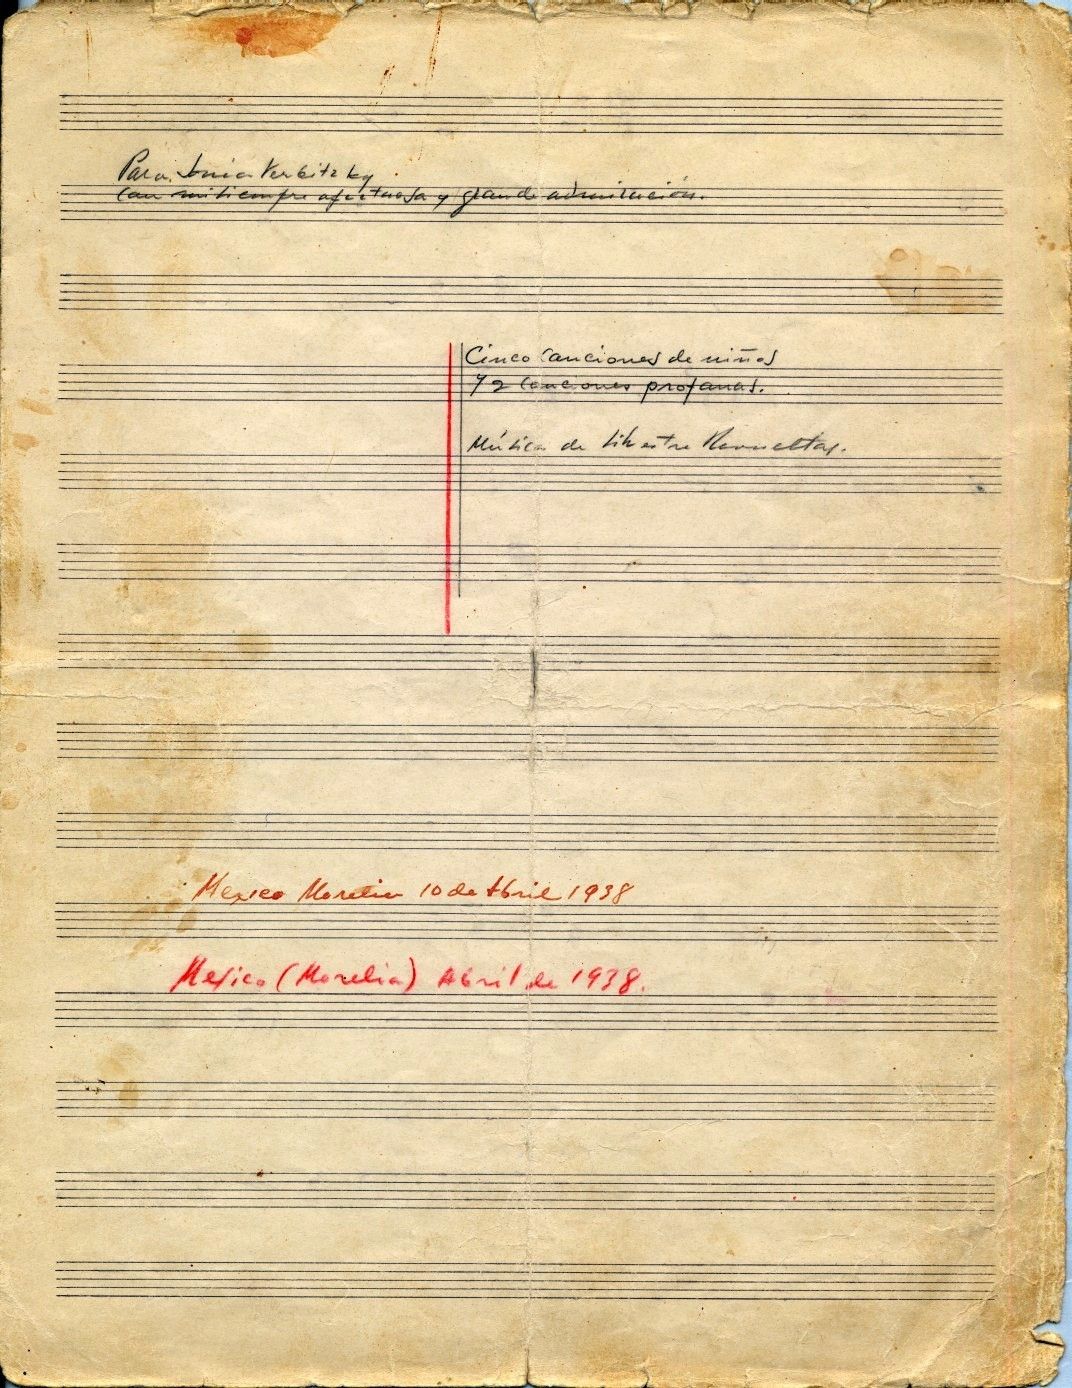 Para Sonia Verbitzky
con mi siempre afectuosa y grande admiración.
Cinco Canciones de niños
y 2 canciones profanas.
Música de Silvestre Revueltas.
Mexico Morelia 10 de Abril 1938
Mexico (Morelia) Abril de 1938.